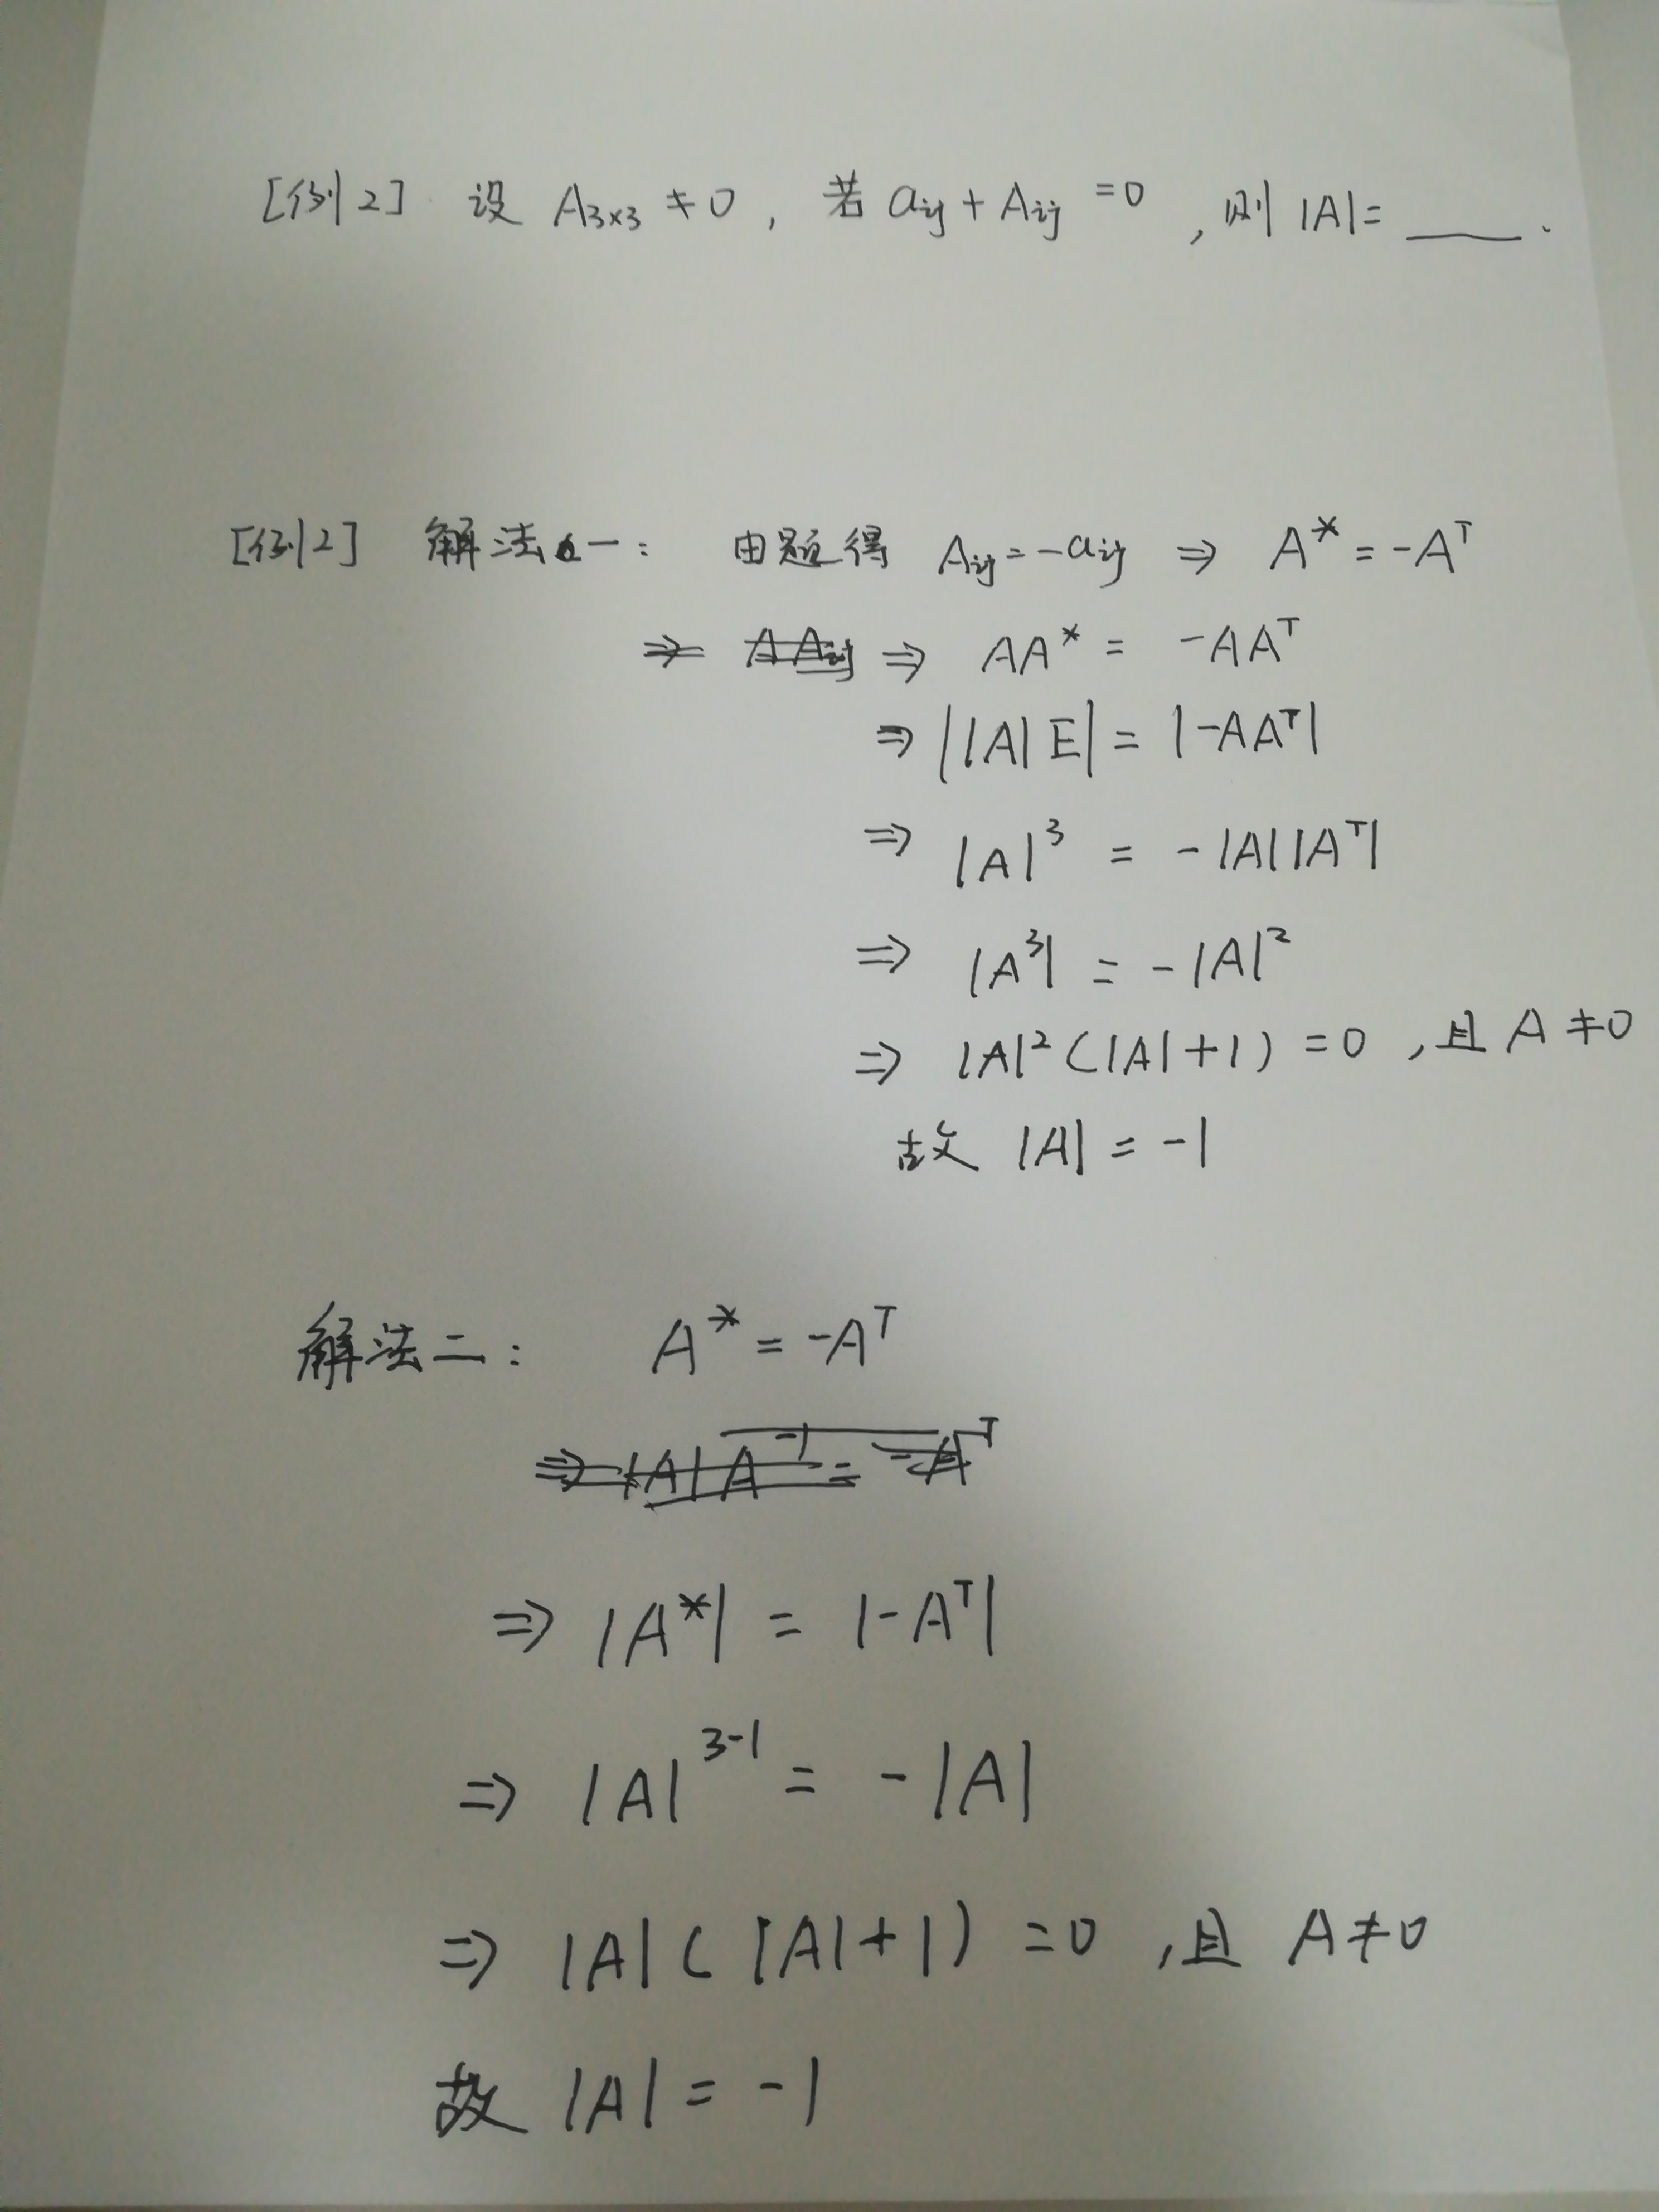 [例2] 设 A₃ₓ₃ ≠ 0 , 若 aᵢⱼ + Aᵢⱼ = 0 , 则 |A| = ____ .
[例2] 解法一: 由题得 Aᵢⱼ = -aᵢⱼ ⇒ A* = -Aᵀ
⇒ AA* = -AAᵀ
⇒ ||A|E| = |-AAᵀ|
⇒ |A|³ = -|A||Aᵀ|
⇒ |A³| = -|A|²
⇒ |A|²(|A|+1) = 0 , 且 A ≠ 0
故 |A| = -1
解法二: A* = -Aᵀ
⇒ |A|A⁻¹ = -Aᵀ
⇒ |A*| = |-Aᵀ|
⇒ |A|³⁻¹ = -|A|
⇒ |A|(|A|+1) = 0 , 且 A ≠ 0
故 |A| = -1